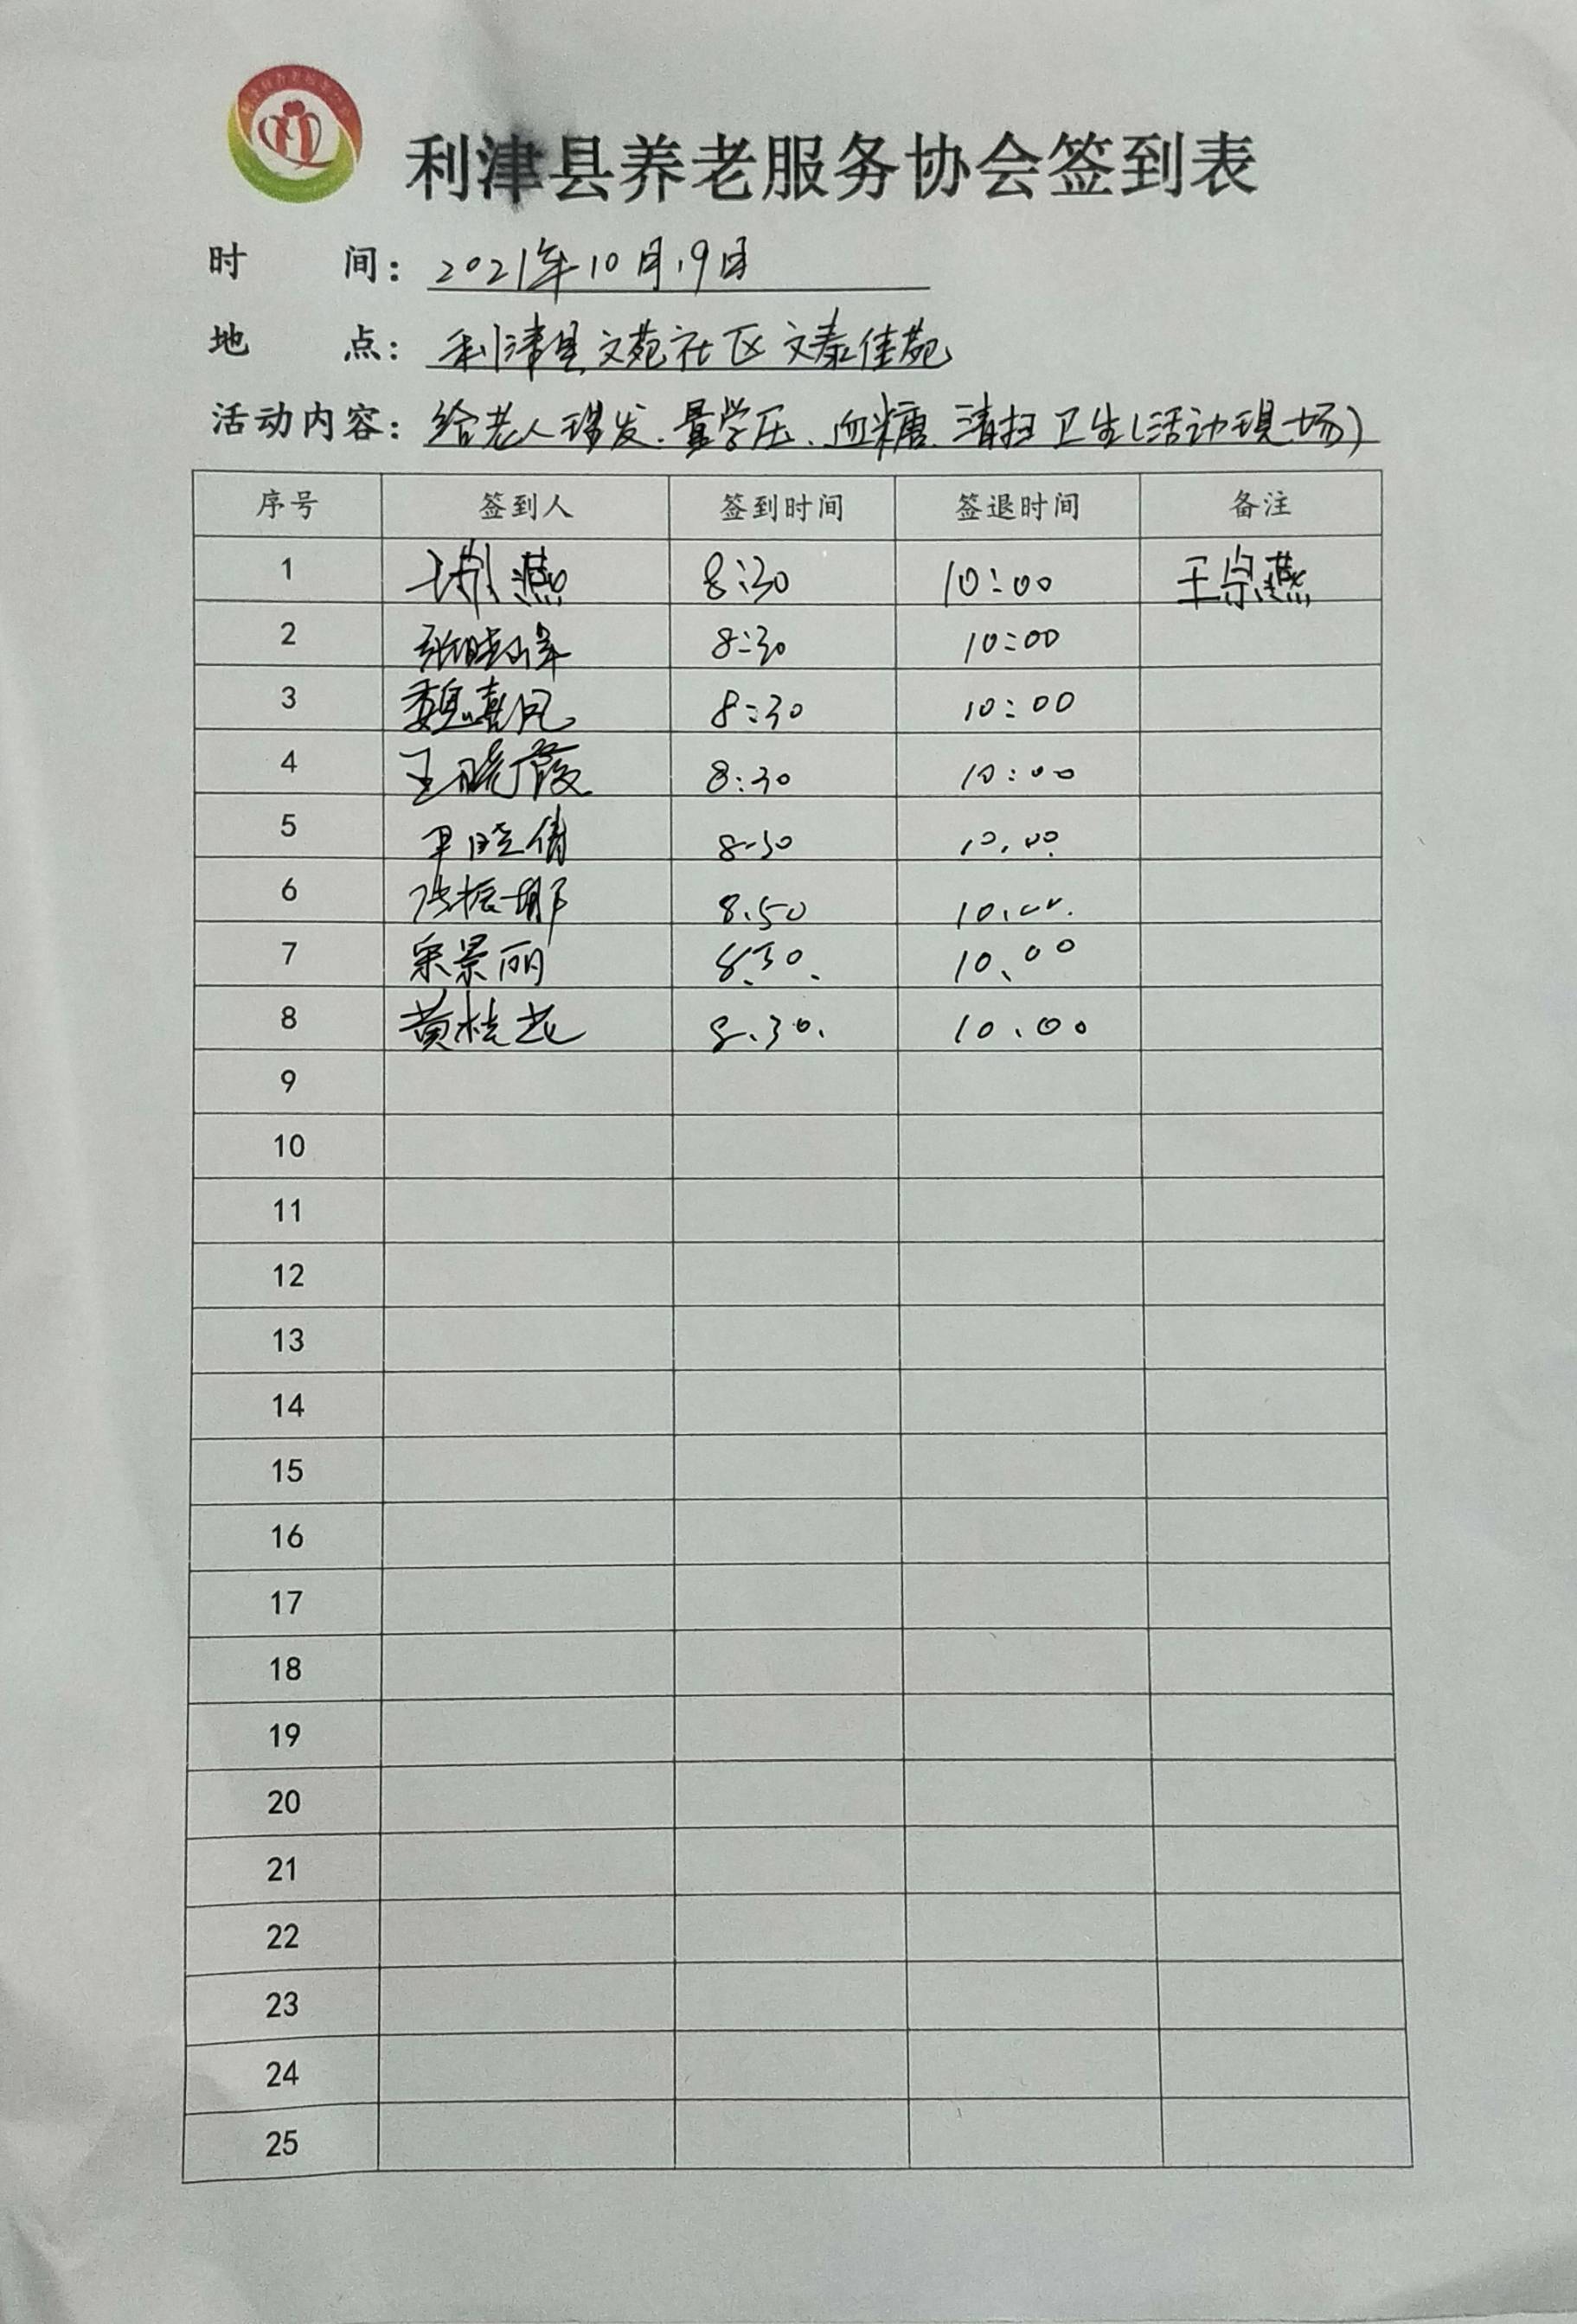 利津县养老服务协会签到表
时 间: 2021年10月19日
地 点: 利津县文苑社区文泰佳苑
活动内容: 给老人理发、量学压、血糖、清扫卫生(活动现场)
序号 签到人 签到时间 签退时间 备注
1 燕 8:30 10:00 王宗燕
2 8:30 10:00
3 魏喜凤 8:30 10:00
4 王晓霞 8:30 10:00
5 晓倩 8-30 10.00
6 张振那 8.50 10.00.
7 宋景丽 8.30. 10.00
8 黄桂花 8.30. 10.00
9
10
11
12
13
14
15
16
17
18
19
20
21
22
23
24
25